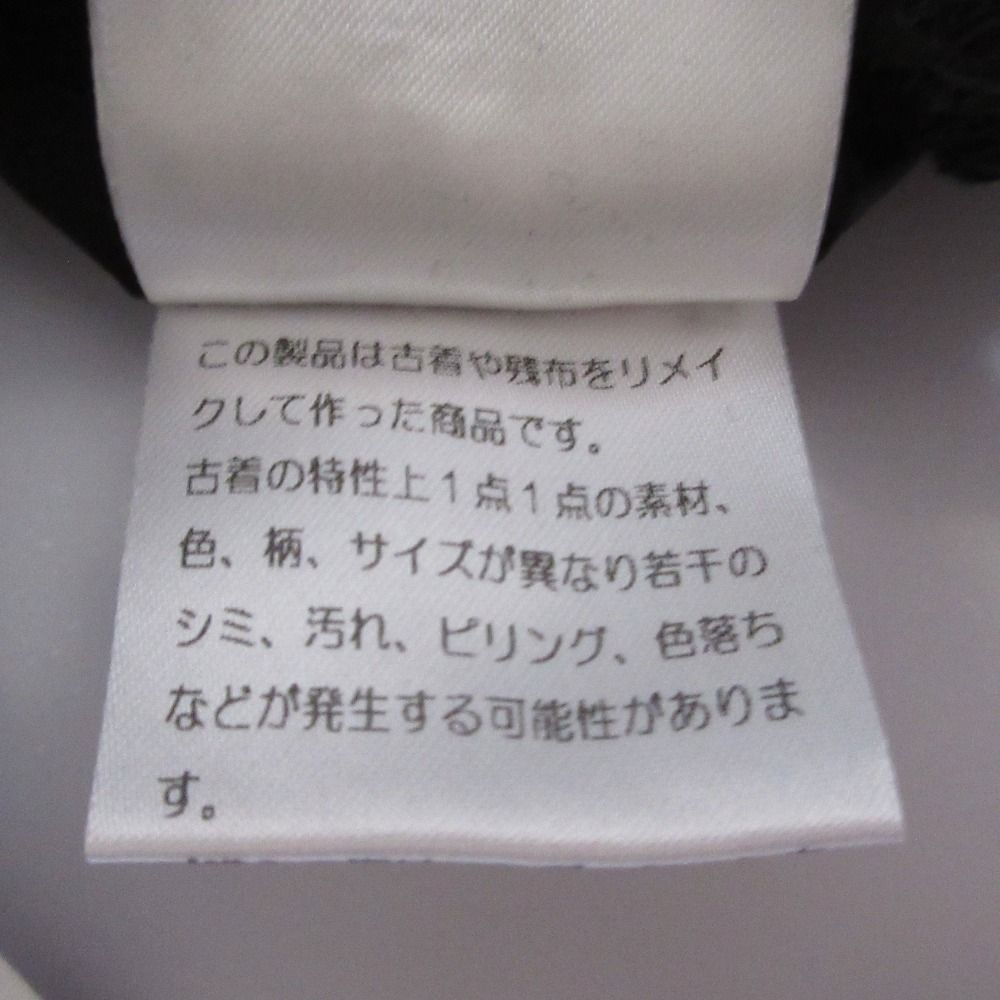 この製品は古着や残布をリメイ
クして作った商品です。
古着の特性上1点1点の素材、
色、柄、サイズが異なり若干の
シミ、汚れ、ピリング、色落ち
などが発生する可能性がありま
す。